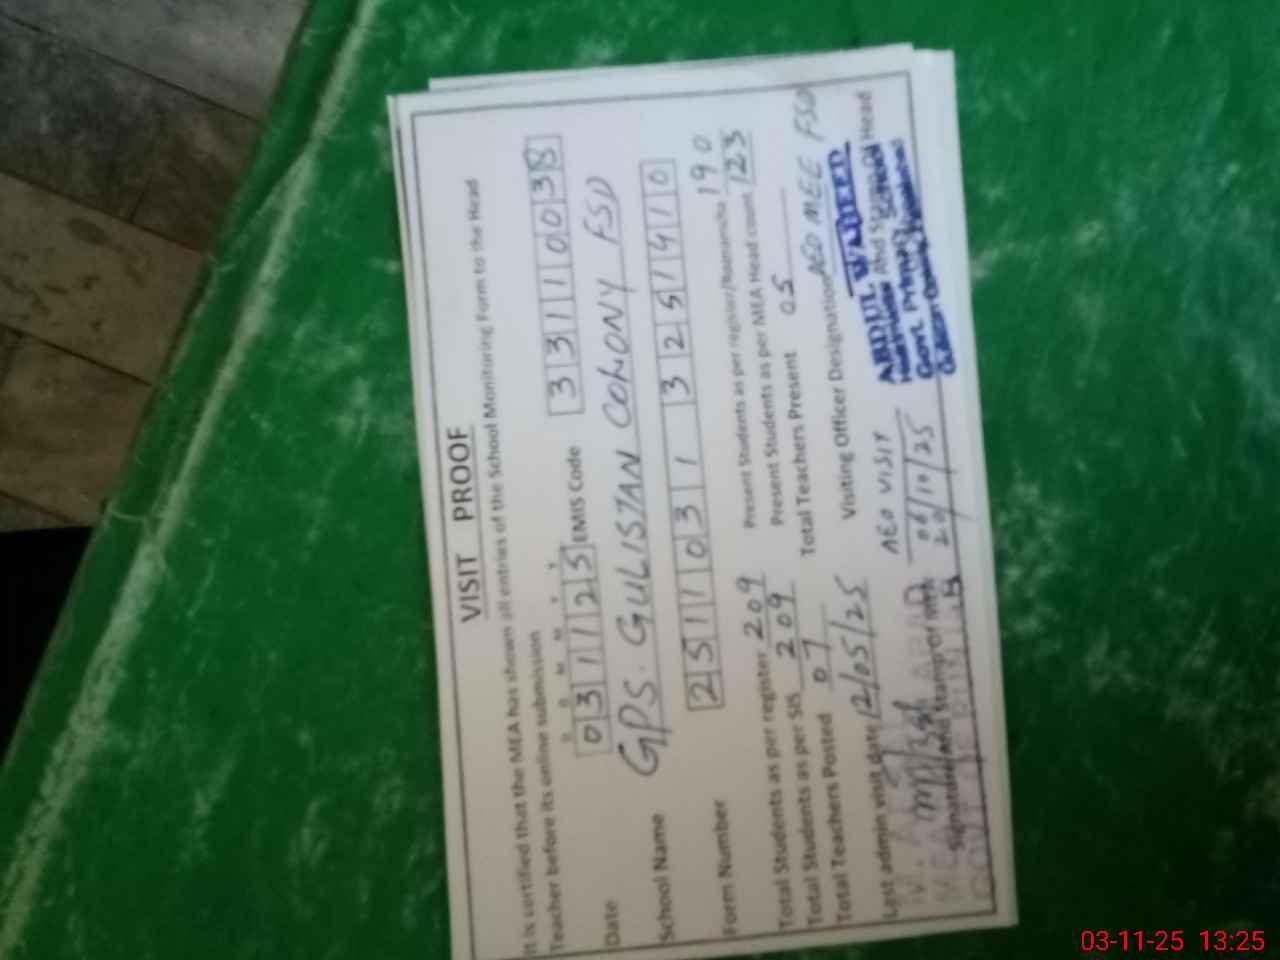 VISIT PROOF
It is certified that the MEA has shown all entries of the School Monitoring Form to the Head
Teacher before its online submission
D D M M Y Y
Date 031125 EMIS Code 33110038
School Name GPS. GULISTAN COLONY FSD
Form Number 2511031 3251910
190
Total Students as per register 209 Present Students as per register/Roznamcha
Total Students as per SIS 209 Present Students as per MEA Head count 123
Total Teachers Posted 07 Total Teachers Present 05
Last admin visit date 12/05/25 Visiting Officer Designation AEO MEE FSD
AEO VISIT
06/10/25
20/10/25
ABDUL WAHEED
Signature And Stamp of MEA And Stamp of Head
Govt. Primary School
03-11-25 13:25